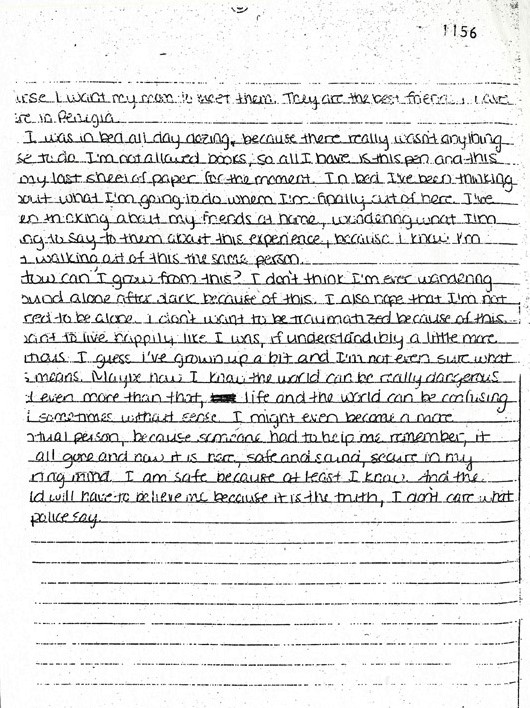 1156
urse I want my mom to meet them. They are the best friends I have
ere in Perugia.
I was in bed all day dozing, because there really wasn't anything
se to do. I'm not allowed books, so all I have is this pen and this
my last sheet of paper for the moment. In bed I've been thinking
out what I'm going to do when I'm finally out of here. I've
en thinking about my friends at home, wondering what I'm
ng to say to them about this experience, because I know I'm
t walking out of this the same person.
How can I grow from this? I don't think I'm ever wandering
ound alone after dark because of this. I also hope that I'm not
red to be alone. I don't want to be traumatized because of this.
want to live happily like I was, if understandibly a little more
I guess I've grown up a bit and I'm not even sure what
s means. Maybe now I know the world can be really dangerous
d even more than that, life and the world can be confusing
sometimes without sense. I might even become a more
itual person, because someone had to help me remember, it
all gone and now it is here, safe and sound, secure in my
ring mind. I am safe because at least I know. And the
ld will have to believe me because it is the truth, I don't care what
police say.